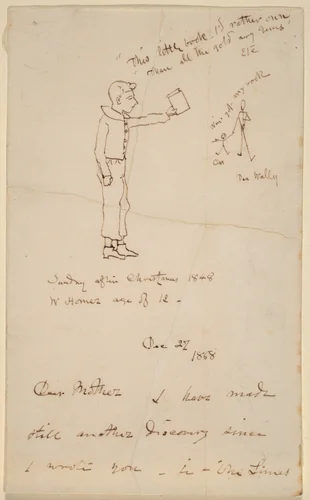 "This little book I'd rather own
Than all the gold any
Etc
I've got my book
Sunday after Christmas 1848
W Homer age of 12 -
Dec 27
1888
Dear Mother I have made
still another Discovery since
I wrote you - in - The Times